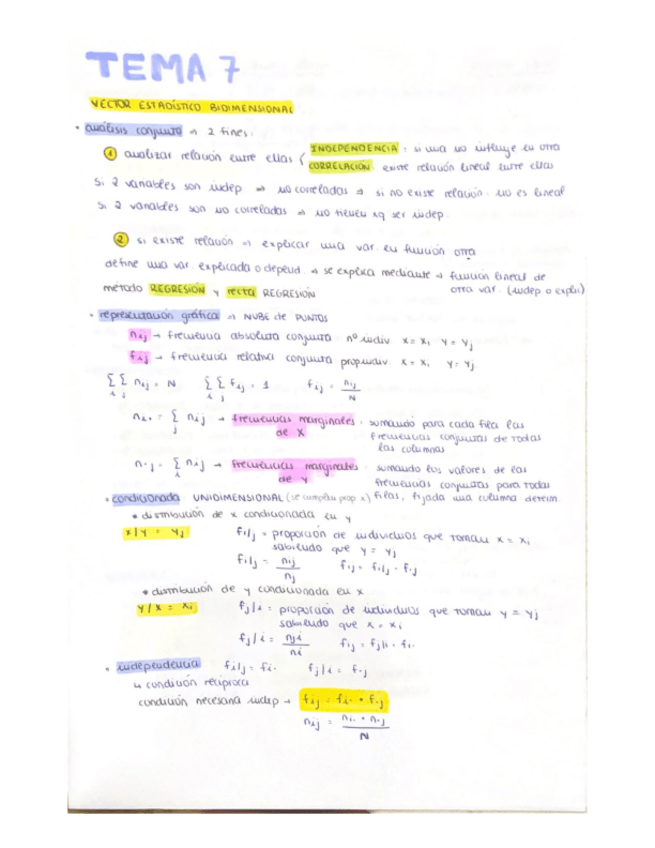 TEMA 7
VECTOR ESTADÍSTICO BIDIMENSIONAL
• análisis conjunto → 2 fines:
① analizar relación entre ellas { INDEPENDENCIA: si una no influye en otra
CORRELACIÓN: existe relación lineal entre ellas
Si 2 variables son indep ⇒ no correladas ⇒ si no existe relación: no es lineal
Si 2 variables son no correladas ⇒ no tienen xq ser indep.
② si existe relación ⇒ explicar una var. en función otra
define una var. explicada o depend. → se explica mediante → función lineal de
método REGRESIÓN y recta REGRESIÓN otra var. (indep o expli)
• representación gráfica ⇒ NUBE de PUNTOS
nij → frecuencia absoluta conjunta: nº indiv. x = xi y = yj
fij → frecuencia relativa conjunta prop.indiv. x = xi y = yj
∑i ∑j nij = N ∑i ∑j fij = 1 fij = nij/N
ni. = ∑j nij → frecuencias marginales: sumando para cada fila las
de X frecuencias conjuntas de todas
las columnas
n.j = ∑i nij → frecuencias marginales: sumando los valores de las
de Y frecuencias conjuntas para todas
• condicionada: UNIDIMENSIONAL (se cumplen prop. x) filas, fijada una columna determ.
• distribución de x condicionada en y
x/y = yj fi/j = proporción de individuos que toman x = xi
sabiendo que y = yj
fi/j = nij/nj fij = fi/j · f.j
• distribución de y condicionada en x
y/x = xi fj/i = proporción de individuos que toman y = yj
sabiendo que x = xi
fj/i = nji/ni fij = fj/i · fi.
• independencia fi/j = fi. fj/i = f.j
↳ condición recíproca
condición necesaria indep → fij = fi. · f.j
nij = ni. · n.j/N